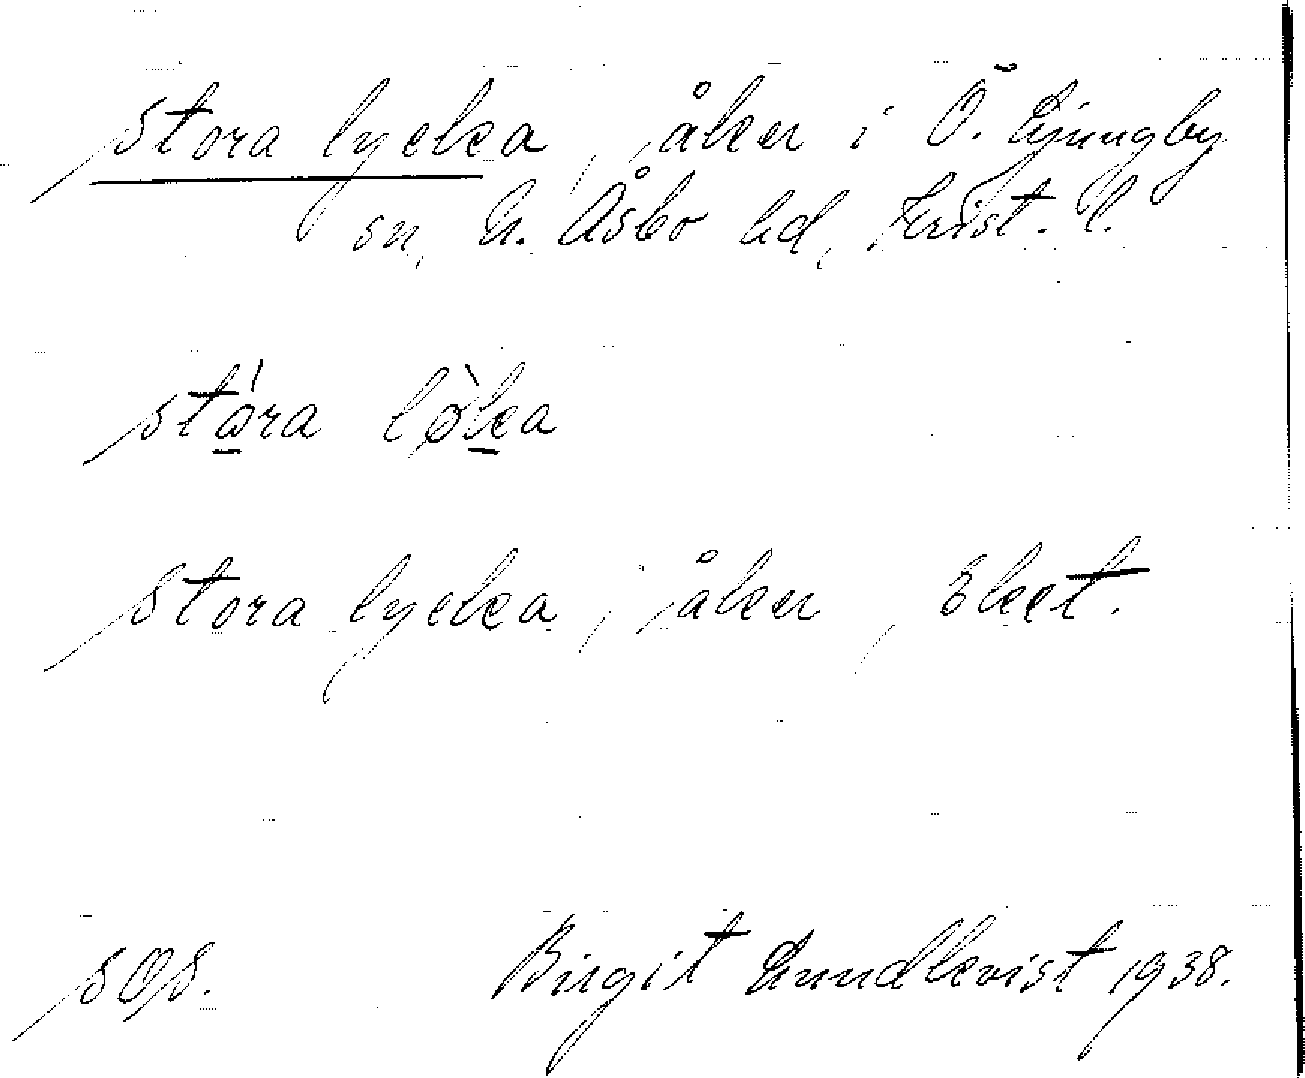 Stora lycka, åker i Ö. Ljungby
sn, N. Åsbo hd, Krist. l.
stóra lø̀ka
Stora lycka, åker, Eket.
SOS. Birgit Lundkvist 1938.